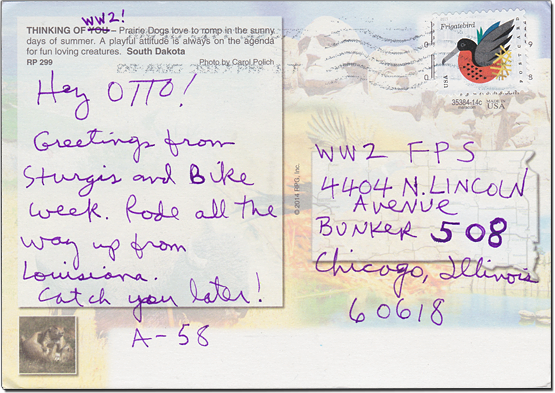 WW2!
THINKING OF YOU – Prairie Dogs love to romp in the sunny
days of summer. A playful attitude is always on the agenda
for fun loving creatures. South Dakota
RP 299 Photo by Carol Polich
Hey OTTO!
Greetings from
Sturgis and Bike
Week. Rode all the
way up from
Louisiana.
Catch you later!
A-58
© 2014 RPG, Inc.
Frigatebird
USA
35384-14c
USA
WW2 FPS
4404 N. LINCOLN
AVENUE
BUNKER 508
Chicago, Illinois
60618